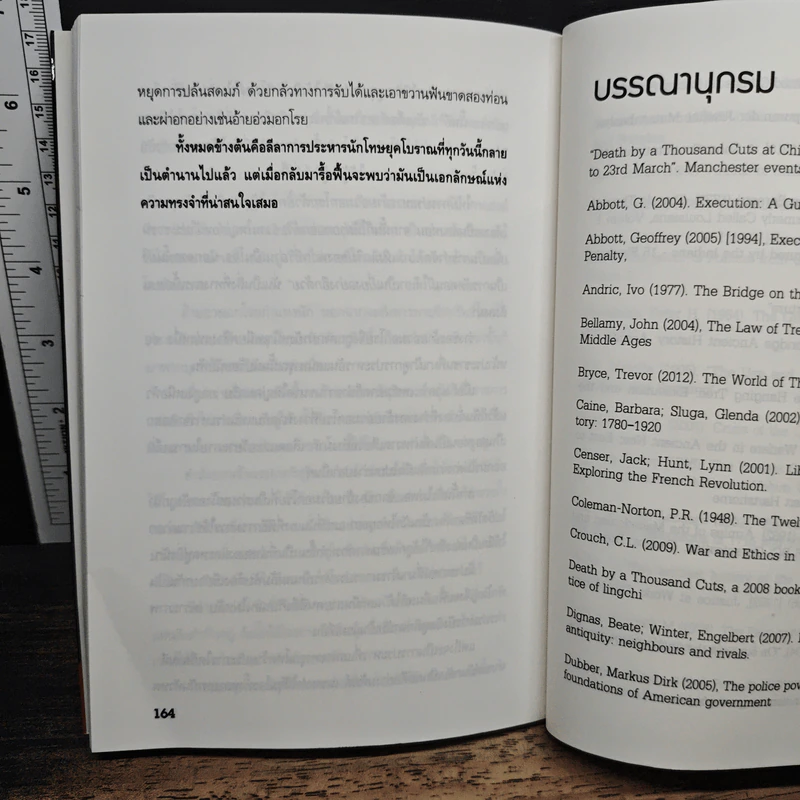 หยุดการปล้นสดมภ์ ด้วยกลัวทางการจับได้และเอาขวานฟันขาดสองท่อน
และผ่าอกอย่างเช่นอ้ายอ่วมอกโรย
ทั้งหมดข้างต้นคือลีลาการประหารนักโทษยุคโบราณที่ทุกวันนี้กลาย
เป็นตำนานไปแล้ว แต่เมื่อกลับมารื้อฟื้นจะพบว่ามันเป็นเอกลักษณ์แห่ง
ความทรงจำที่น่าสนใจเสมอ
164
บรรณานุกรม
"Death by a Thousand Cuts at Chi
to 23rd March". Manchester events
Abbott, G. (2004). Execution: A Gu
Abbott, Geoffrey (2005) [1994], Exec
Penalty,
Andric, Ivo (1977). The Bridge on th
Bellamy, John (2004), The Law of Tre
Middle Ages
Bryce, Trevor (2012). The World of Th
Caine, Barbara; Sluga, Glenda (2002)
tory: 1780-1920
Censer, Jack; Hunt, Lynn (2001). Lib
Exploring the French Revolution.
Coleman-Norton, P.R. (1948). The Twel
Crouch, C.L. (2009). War and Ethics in
Death by a Thousand Cuts, a 2008 book
tice of lingchi
Dignas, Beate; Winter, Engelbert (2007).
antiquity: neighbours and rivals.
Dubber, Markus Dirk (2005), The police pow
foundations of American government
17
16
15
14
13
12
11
10
9
8
7
6
5
4
3
2